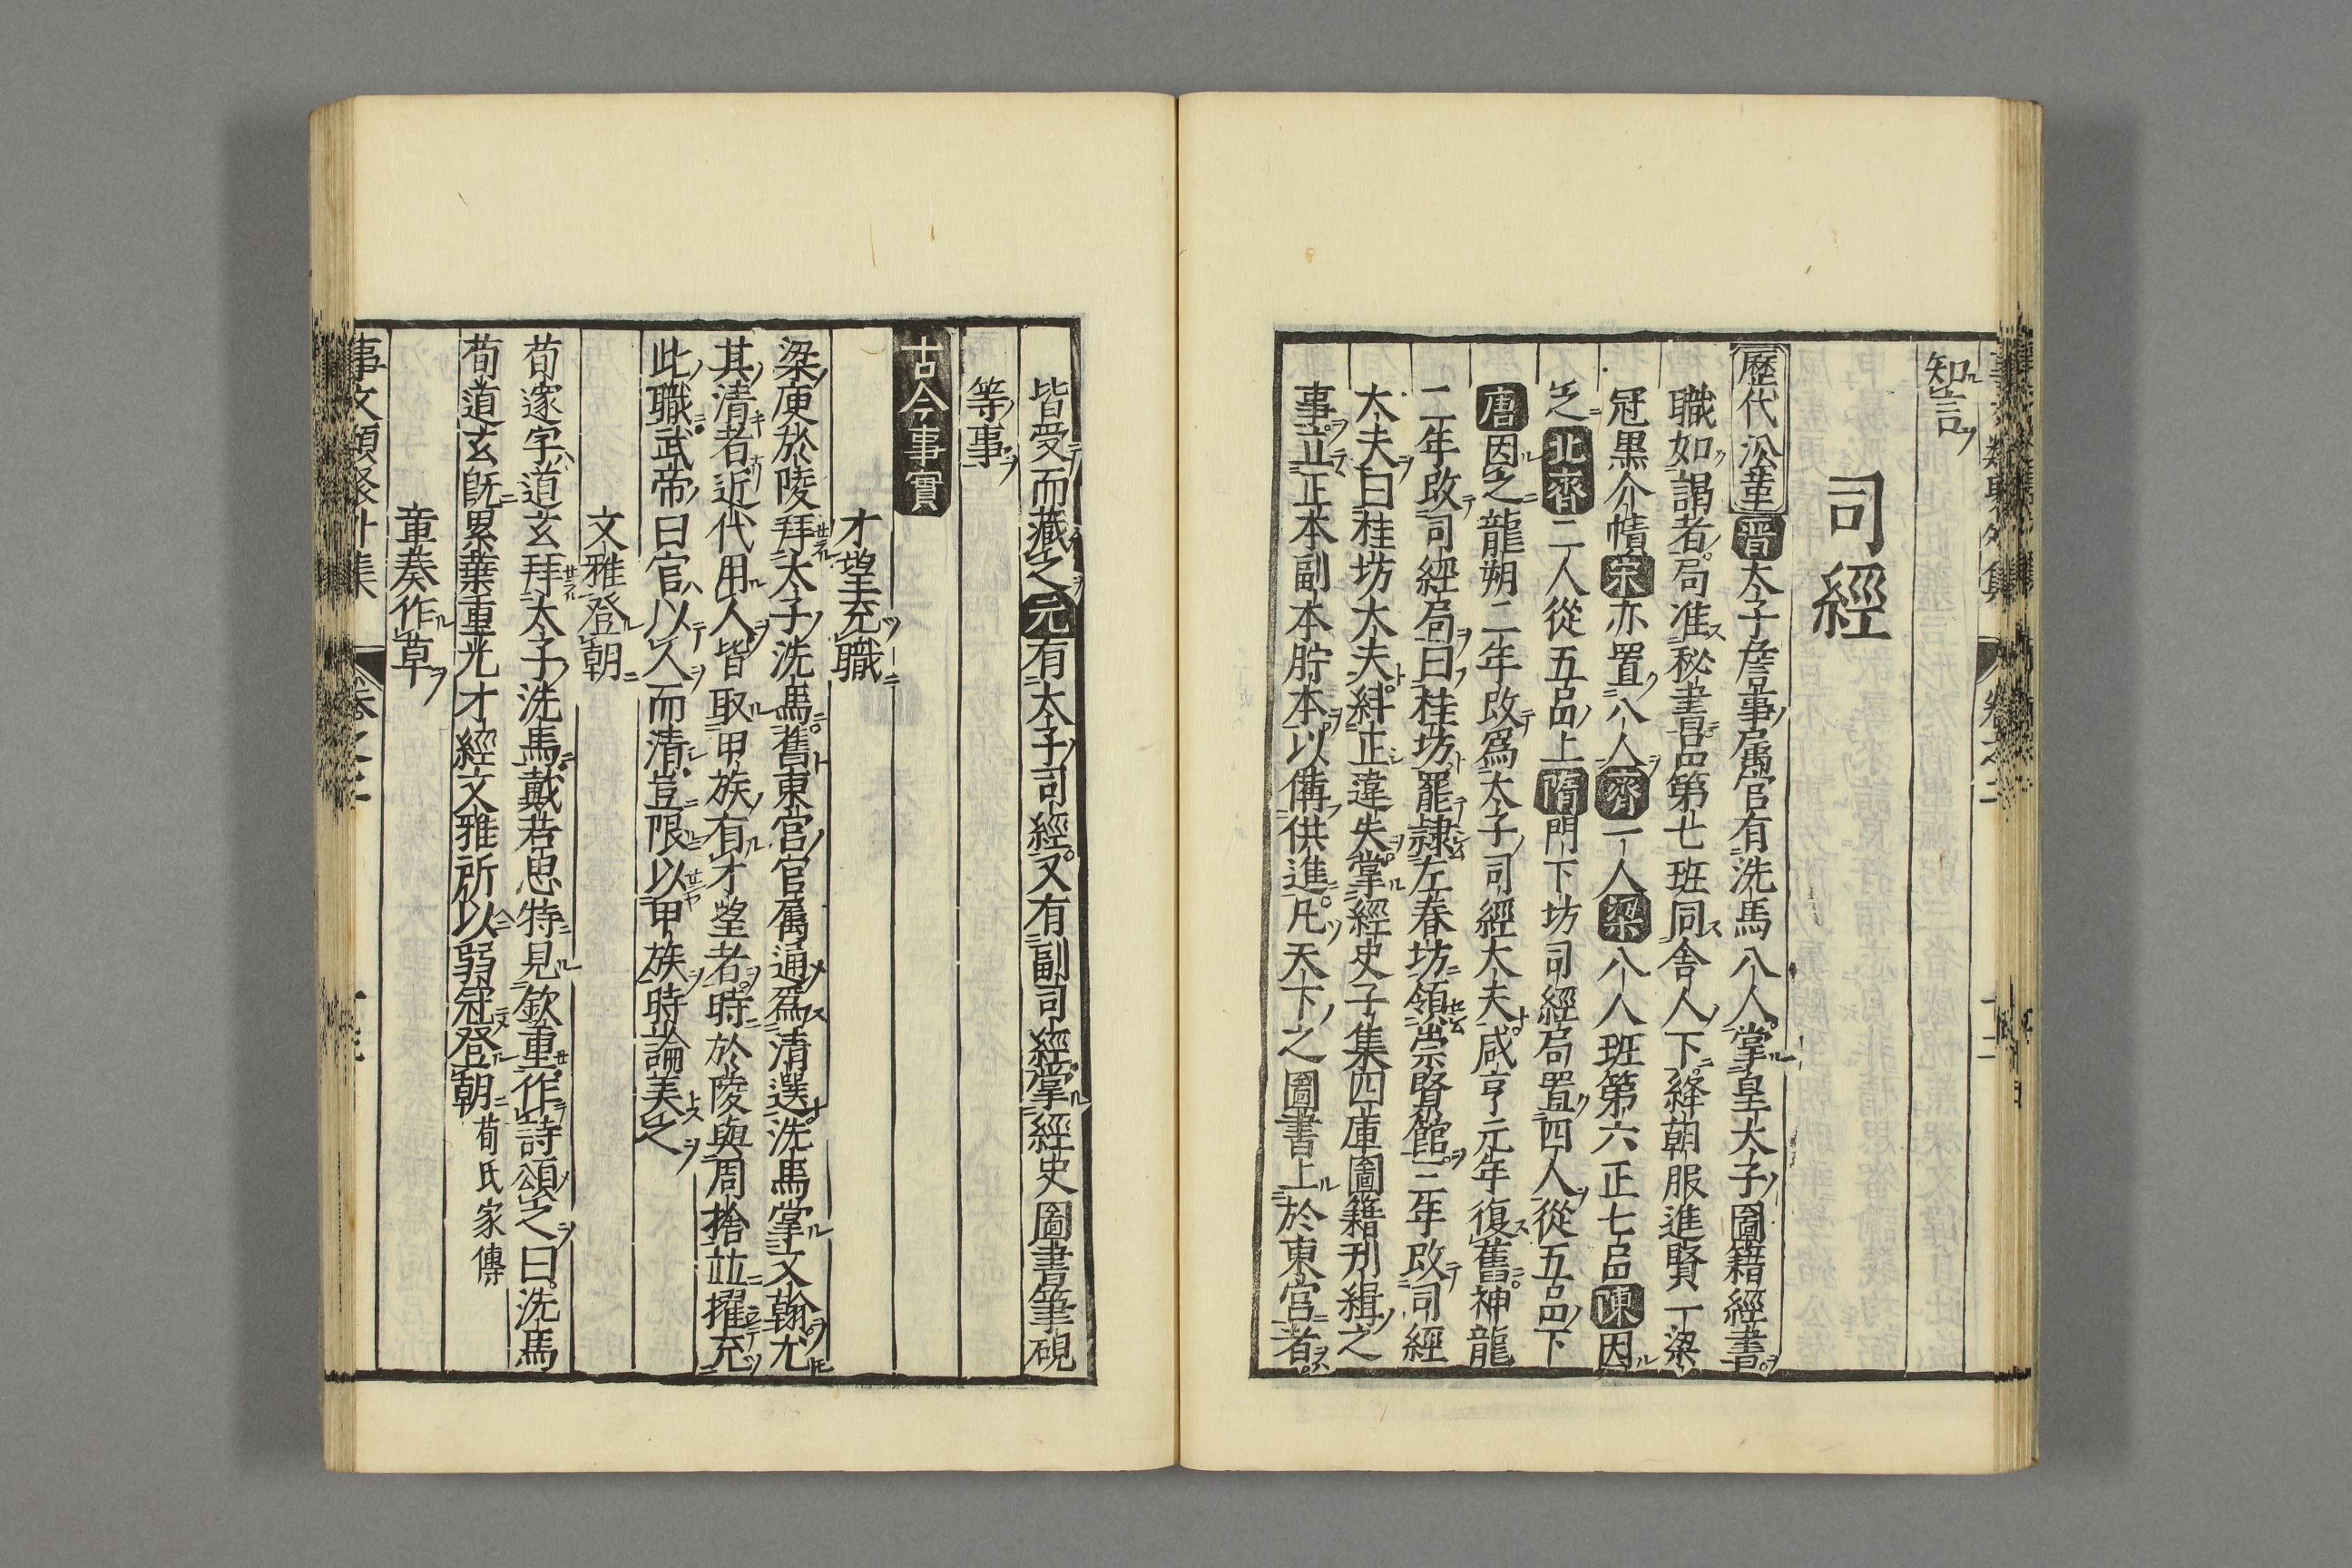 知言
司經
歷代沿革晋太子詹事属官有洗馬八人掌皇太子圖籍經書
職如謁者局准秘書品第七班同舍人下絳朝服進賢一梁
冠黒介幘宋亦置八人齊一人梁八人班第六正七品陳因
之北齊二人從五品上隋門下坊司經局置四人從五品下
唐因之龍朔二年改爲太子司經大夫咸亨元年復舊神龍
二年改司經局曰桂坊罷隷左春坊領崇賢館三年改司經
大夫曰桂坊大夫糾正違失掌經史子集四庫圖籍刋緝之
事立正本副本貯本以備供進凡天下之圖書上於東宫者
皆受而藏之元有太子司經又有副司經掌經史圖書筆硯
等事
古今事實
才望充職
梁庾於陵拜太子洗馬舊東宫官属通爲清選洗馬掌文翰尤
其清者近代用人皆取甲族有才望者時於陵與周捨並擢充
此職武帝曰官以人而清豈限以甲族時論美之
文雅登朝
荀邃字道玄拜太子洗馬戴若思特見欽重作詩頌之曰洗馬
荀道玄既累葉重光才經文雅所以弱冠登朝荀氏家傳
童奏作草
事文類聚外集 卷之二